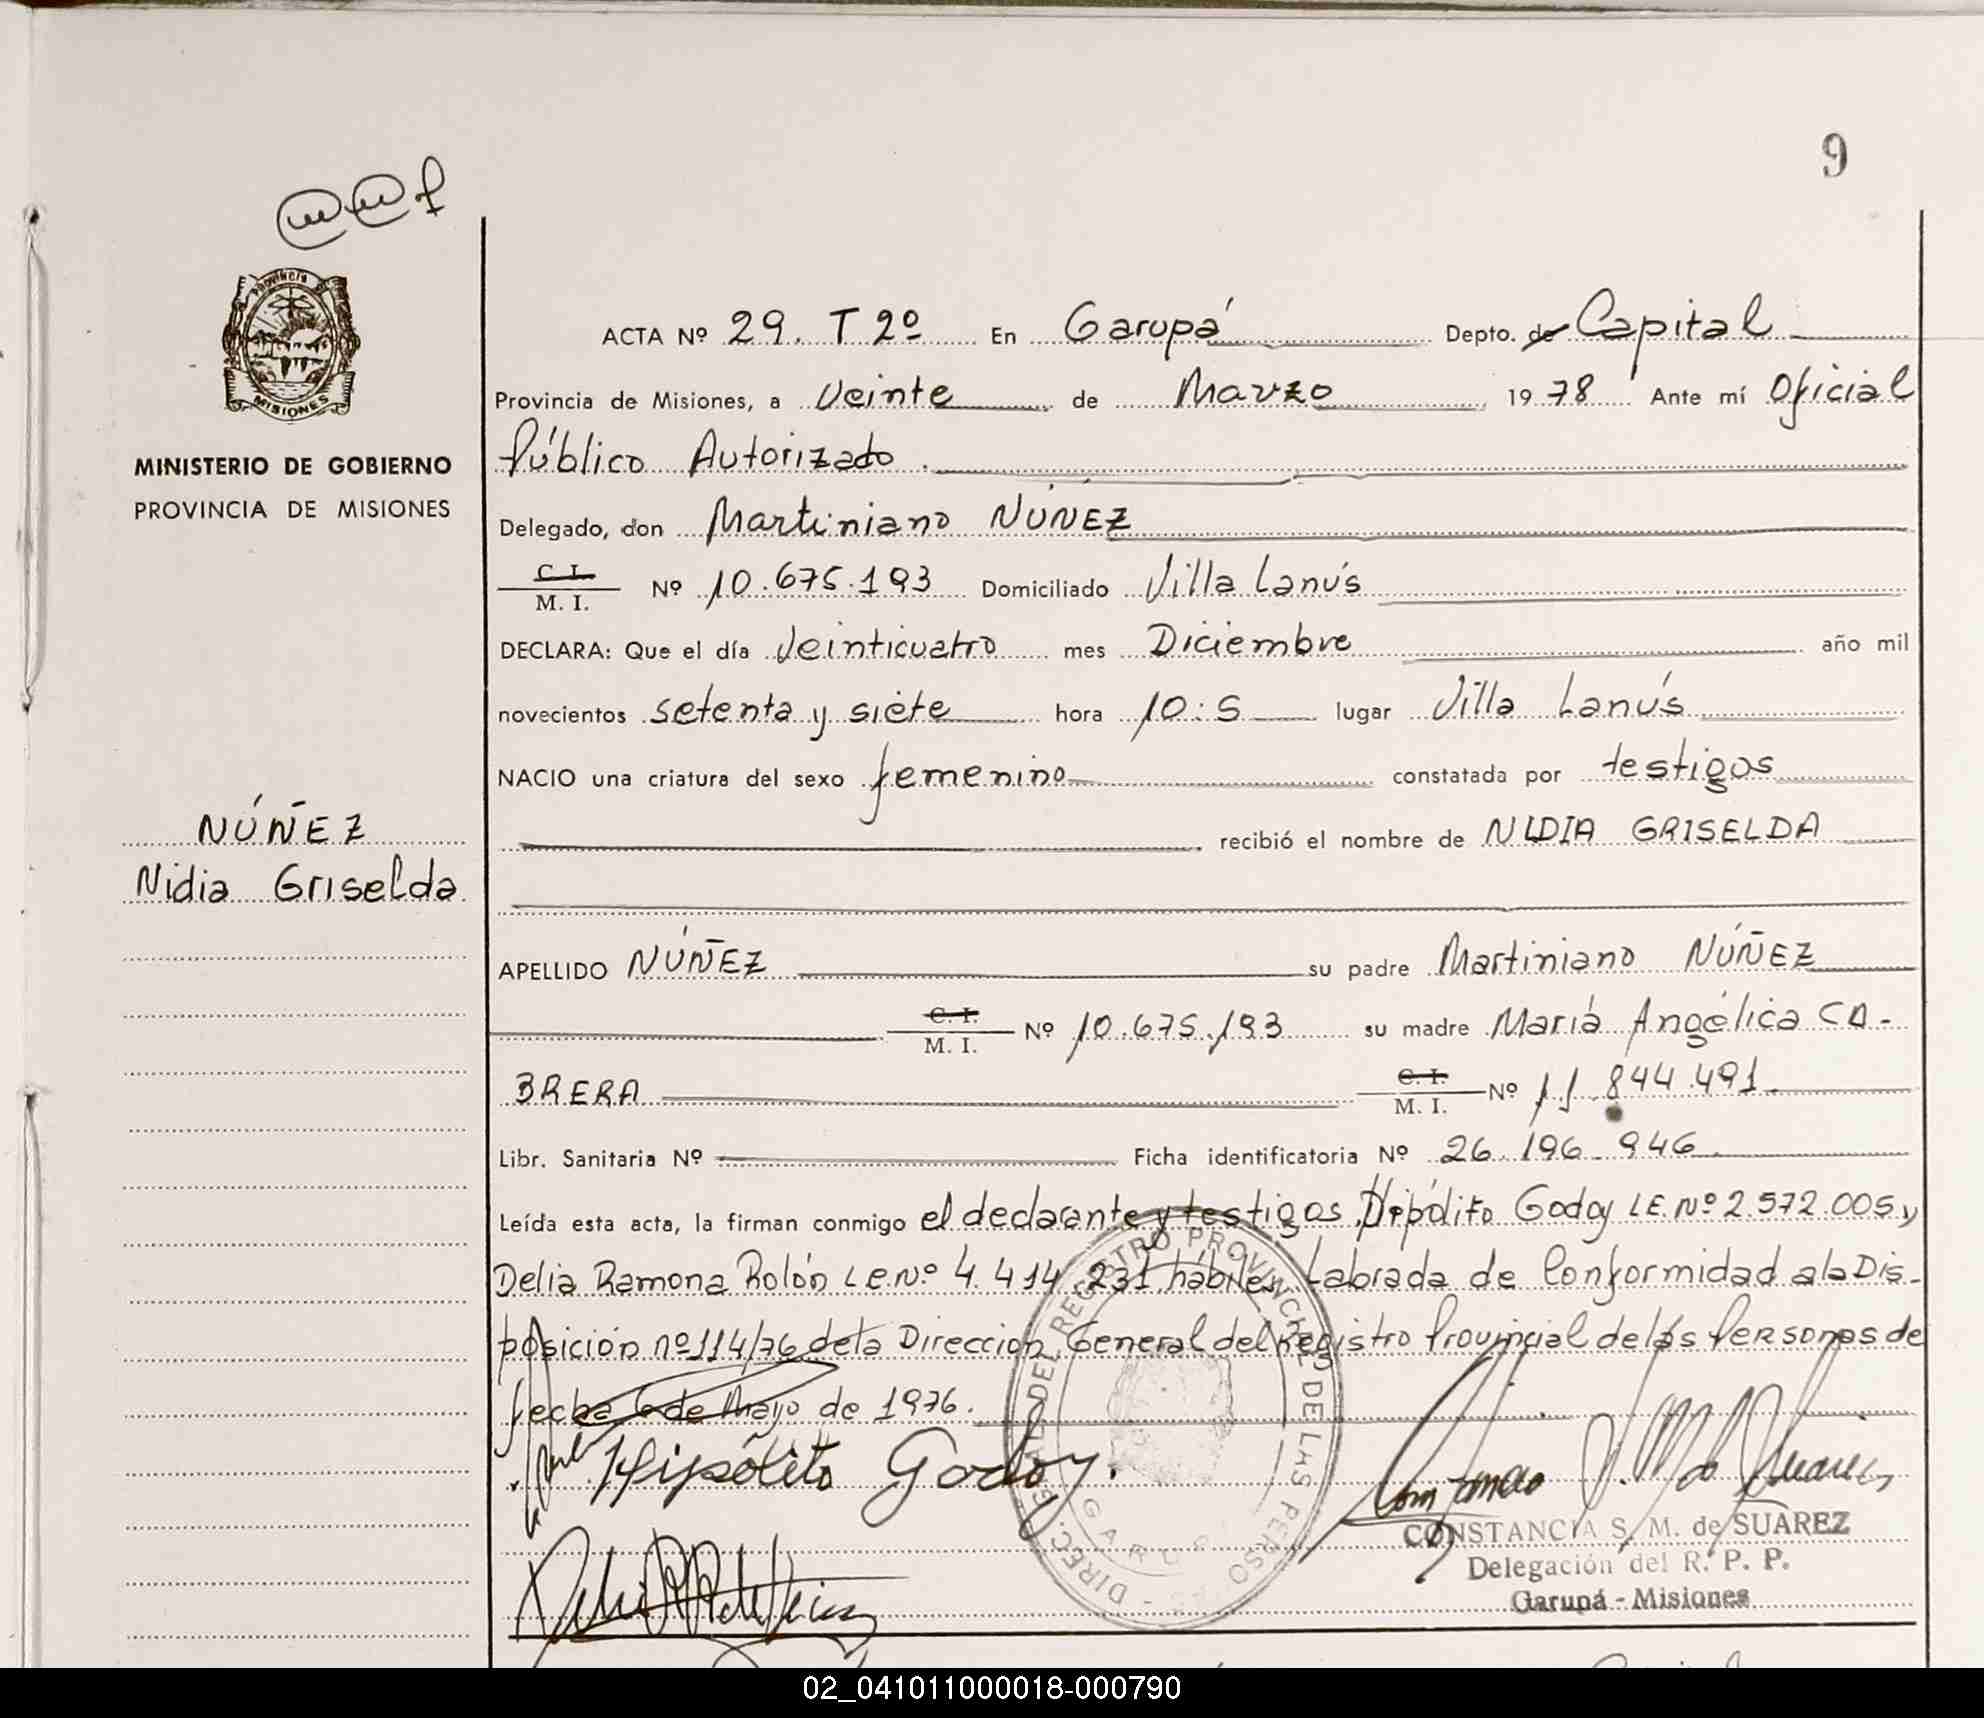 9
Provincia
MISIONES
MINISTERIO DE GOBIERNO
PROVINCIA DE MISIONES
NÚÑEZ
Nidia Griselda
ACTA Nº 29. T 2º En Garupá Depto. de Capital
Provincia de Misiones, a Veinte de Marzo 1978 Ante mí Oficial
Público Autorizado.
Delegado, don Martiniano NÚÑEZ
C. I. / M. I. Nº 10.675.193 Domiciliado Villa Lanús
DECLARA: Que el día Veinticuatro mes Diciembre año mil
novecientos setenta y siete hora 10:5 lugar Villa Lanús
NACIO una criatura del sexo femenino constatada por testigos
recibió el nombre de NIDIA GRISELDA
APELLIDO NÚÑEZ su padre Martiniano NÚÑEZ
C. I. / M. I. Nº 10.675.193 su madre María Angélica CA-
BRERA C. I. / M. I. Nº 11.844.491.
Libr. Sanitaria Nº Ficha identificatoria Nº 26.196.946
Leída esta acta, la firman conmigo el declarante y testigos, Hipólito Godoy L.E. Nº 2.572.005 y
Delia Ramona Rolón L.E. Nº 4.414.231 hábiles. Labrada de Conformidad a la Dis-
posición nº 114/76 de la Direccion General del Registro Provincial de las Personas de
fecha 6 de Mayo de 1976.
Hipólito Godoy.
DIREC. GRAL DEL REGISTRO PROVINCIAL DE LAS PERSONAS
GARUPA
CONSTANCIA S. M. de SUAREZ
Delegación del R. P. P.
Garupá - Misiones
02_041011000018-000790